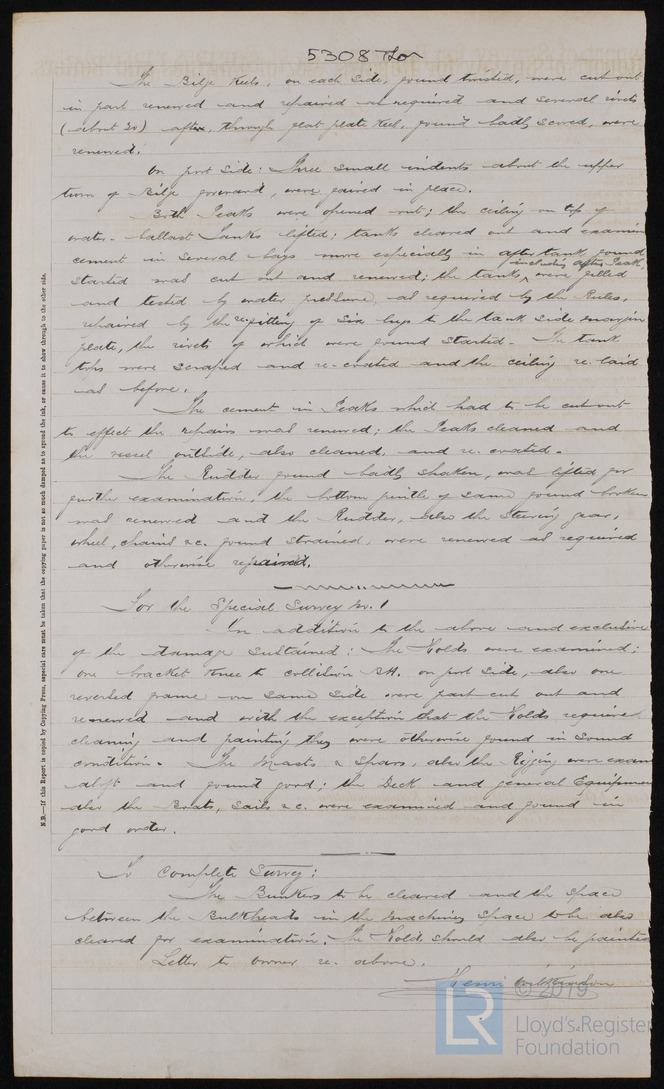 5308 Lon
The Bilge Keels, on each side, found twisted, were cut out
in part renewed and repaired as required and several rivets
(about 20) after, through flat plate keel, found badly scored, were
renewed.
On port side: Three small indents about the upper
turn of Bilge forward, were faired in place.
Both Peaks were opened out; the ceiling on top of
water-ballast Tanks lifted; tanks cleared out and examin
cement in several bays more especially in after tank found
started was cut out and renewed; the tanks, including after Peak, were filled
and tested by water pressure, as required by the Rules,
repaired by the refitting of six lugs to the tank side margin
plate, the rivets of which were found started. The tank
tops were scraped and re-coated and the ceiling re-laid
as before.
The cement in Peaks which had to be cut out
to effect the repairs was renewed; the Peaks cleaned and
the vessel outside, also cleaned, and re-coated.
The Rudder found badly shaken, was lifted for
further examination, the bottom pintle of same found broken
was renewed and the Rudder, also the steering gear,
wheel, chains &c. found strained, were renewed as required
and otherwise repaired.
For the Special Survey No. 1
In addition to the above and exclusive
of the damage sustained: The Holds were examined;
one bracket knee to collision Bh. on port side, also one
reversed frame on same side were part cut out and
renewed and with the exception that the Holds require
cleaning and painting they were otherwise found in sound
condition. The Masts & Spars, also the Rigging were exam
aloft and found good; the Deck and general Equipmen
also the Boats, Sails &c. were examined and found in
good order.
To Complete Survey:
The Bunkers to be cleared and the space
between the Bulkheads in the Machinery space to be also
cleared for examination. The Holds should also be painted
Letter to owner re. above.
Henri Wilkinson
N.B.—If this Report is copied by Copying Press, especial care must be taken that the copying paper is not so much damped as to spread the ink, or cause it to show through to the other side.
© 2019
LR
Lloyd's Register
Foundation